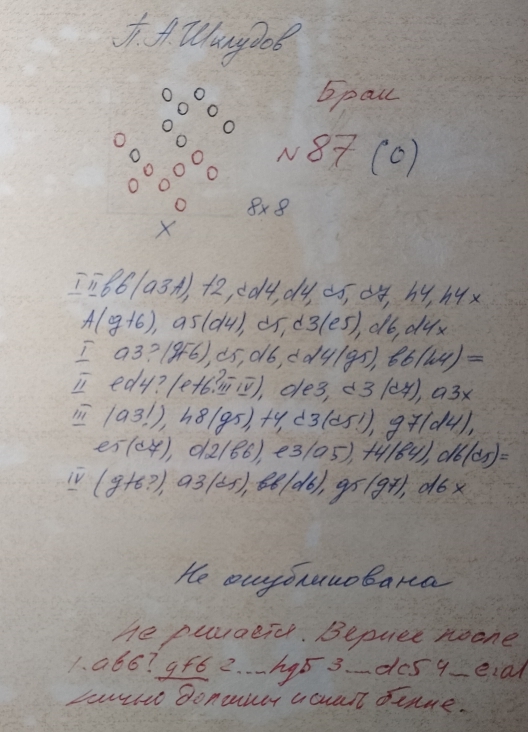 П. А. Шклудов
Брак
№87 (0)
8х8
X
I II b6(a3A), f2, cd4, d4, c5, c7, h4, h4x
A(gf6), a5(d4), c5, c3(e5), d6, d4x
I a3?(gf6), c5, d6, cd4(g5), b6(h4)=
II ed4?(ef6? III IV), de3, c3(c7), a3x
III (a3!), h8(g5), f4, c3(c5!), g7(d4),
e5(c7), d2(b6), e3(a5), f4(b4), d6(c5)=
IV (gf6?), a3(c5), b6(d6), g5(g7), d6x
Не опубликована
Не решается. Вернее после
1. ab6? gf6 2...hg5 3...dc5 4...
должны искать белые.